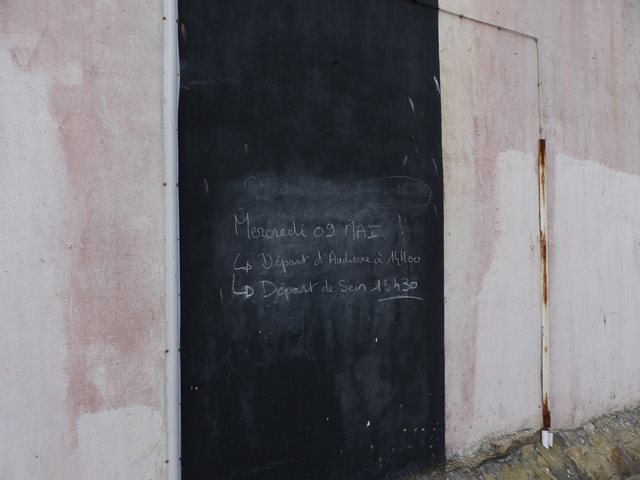 Mercredi 09 MAI
↳ Départ d'Audierne à 14h00
↳ Départ de Sein 15h30